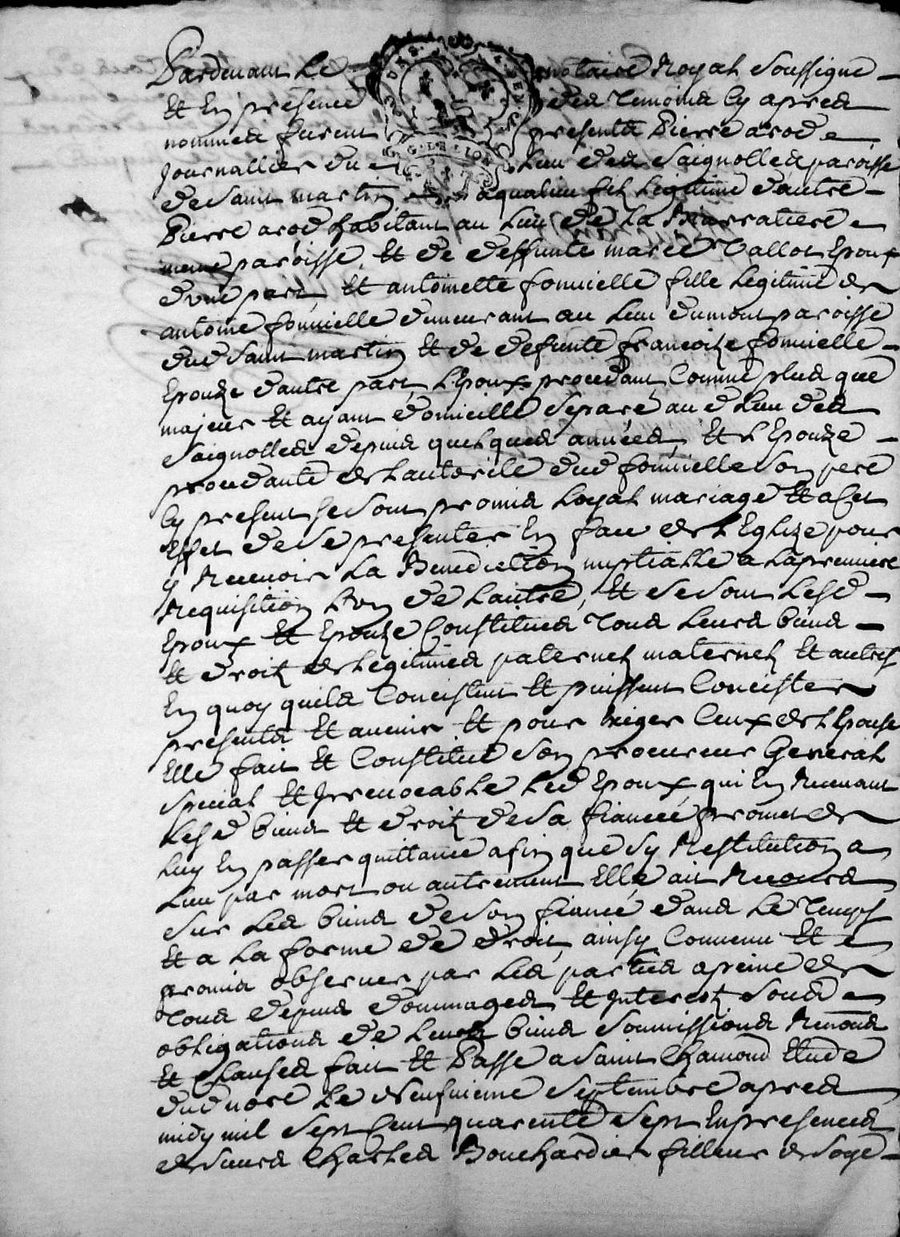 Pardevant Le notaire Royal soussigne
Et En presence des temoins cy apres
nommes furent presents Pierre
Journallier du Lieu des Saignolles paroisse
de Saint martin aqualieu fils legitime d'autre
Pierre habitant au Lieu de La
meme paroisse, Et de deffunte marie Vallot Epoux
d'une part, Et antoinette fonvielle fille Legitime de
antoine fonvielle demeurant au Lieu dumont paroisse
dud Saint martin Et de defunte francoize
Epouze d'autre part, L'Epoux procedant Comme plus que
majeur Et ayant domicille separé au d Lieu des
Saignolles depuis quelques années, Et L'Epouze
procedante de L'autorité dud fonvielle Son pere
Cy present se sont promis Loyal mariage Et a Cet
Effet de se presenter En face de L'Eglize pour
y Recevoir La Benediction nuptialle a La premiere
Requisition L'un de L'autre, Et se sont Lesd
Epoux Et Epouze Constitués tous Leurs biens
Et droits de Legitimes paternels maternels Et autres
En quoy quils Concistent Et puissent Concister
presents Et avenir Et pour Exiger Ceux de L'Epouse
Elle fait Et Constitue Son procureur General
special Et Irrevocable Led Epoux qui En Recevant
Lesd biens Et droits de sa fiancée promet de
Luy En passer quittance afin que sy Restitution a
Lieu par mort ou autrement Elle ait Recours
sur Les biens de son fiancé dans Le temps
Et a La forme de droit, ainsy Convenu Et
promis observer par Les parties a peine de
tous depens dommages Et Interests sous
obligations de Leurs biens soumissions Renons
Et Clauses fait Et Passé a Saint Chamond Etude
dud nore Le Neufvieme Septembre apres
midy mil Sept Cent quarente Sept En presences
de Sieurs Charles Bouchardier filleur de Soye